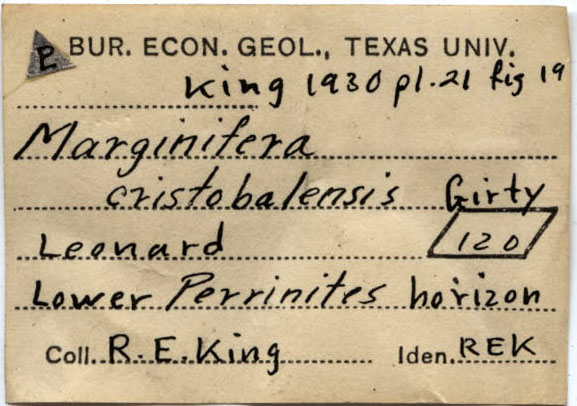 P BUR. ECON. GEOL., TEXAS UNIV.
King 1930 pl. 21 fig 19
Marginifera
cristobalensis Girty
Leonard 120
Lower Perrinites horizon
Coll. R. E. King Iden. REK